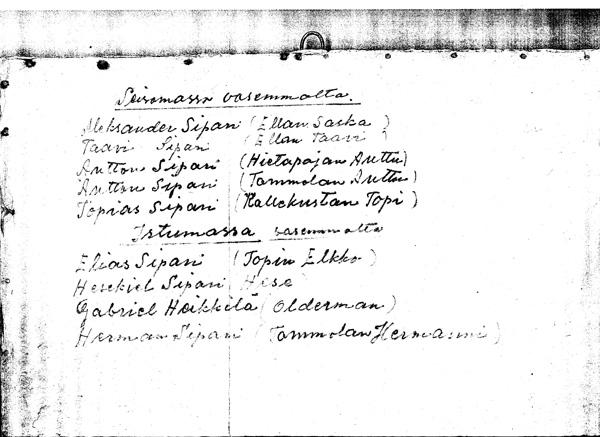 Seisomassa vasemmalta.
Aleksander Sipari (Ellan Saska)
Taavi Sipari (Ellan Taavi
Anttoni Sipari (Hietapajan Anttu)
Anttoni Sipari (Tommolan Anttu)
Topias Sipari (Kallekustan Topi)
Istumassa vasemmalta
Elias Sipari (Topin Elkko)
Hesekiel Sipari (Hese
Gabriel Heikkilä (Olderman)
Herman Sipari (Tommolan Hermanni)